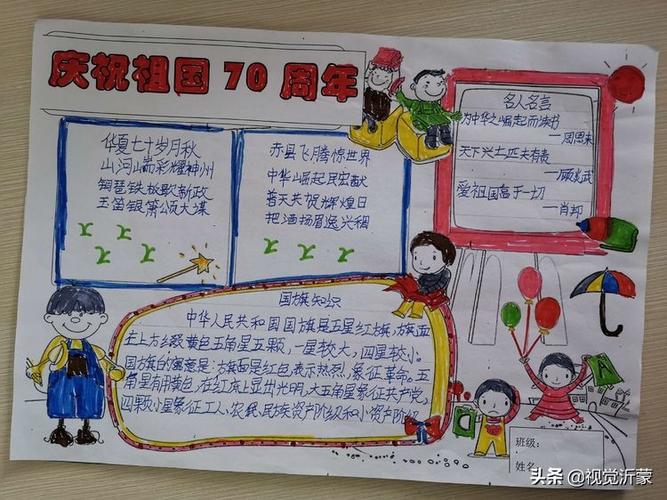 庆祝祖国 70 周年
华夏七十岁月秋
山河端彩耀神州
铜琶铁板歌新政
玉笛银箫颂大谋
赤县飞腾惊世界
中华崛起民宏猷
普天共贺辉煌日
把酒扬眉逸兴稠
名人名言
为中华之崛起而读书
—周恩来
天下兴亡匹夫有责
—顾炎武
爱祖国高于一切
—肖邦
国旗知识
中华人民共和国国旗是五星红旗，旗面
左上方缀黄色五角星五颗，一星较大，四星较小。
国旗的寓意是：旗面是红色，表示热烈，象征革命。五
角星有用黄色，在红底上显出光明，大五角星象征共产党，
四颗小星象征工人、农民、民族资产阶级和小资产阶级
班级：
姓名
头条 @视觉沂蒙